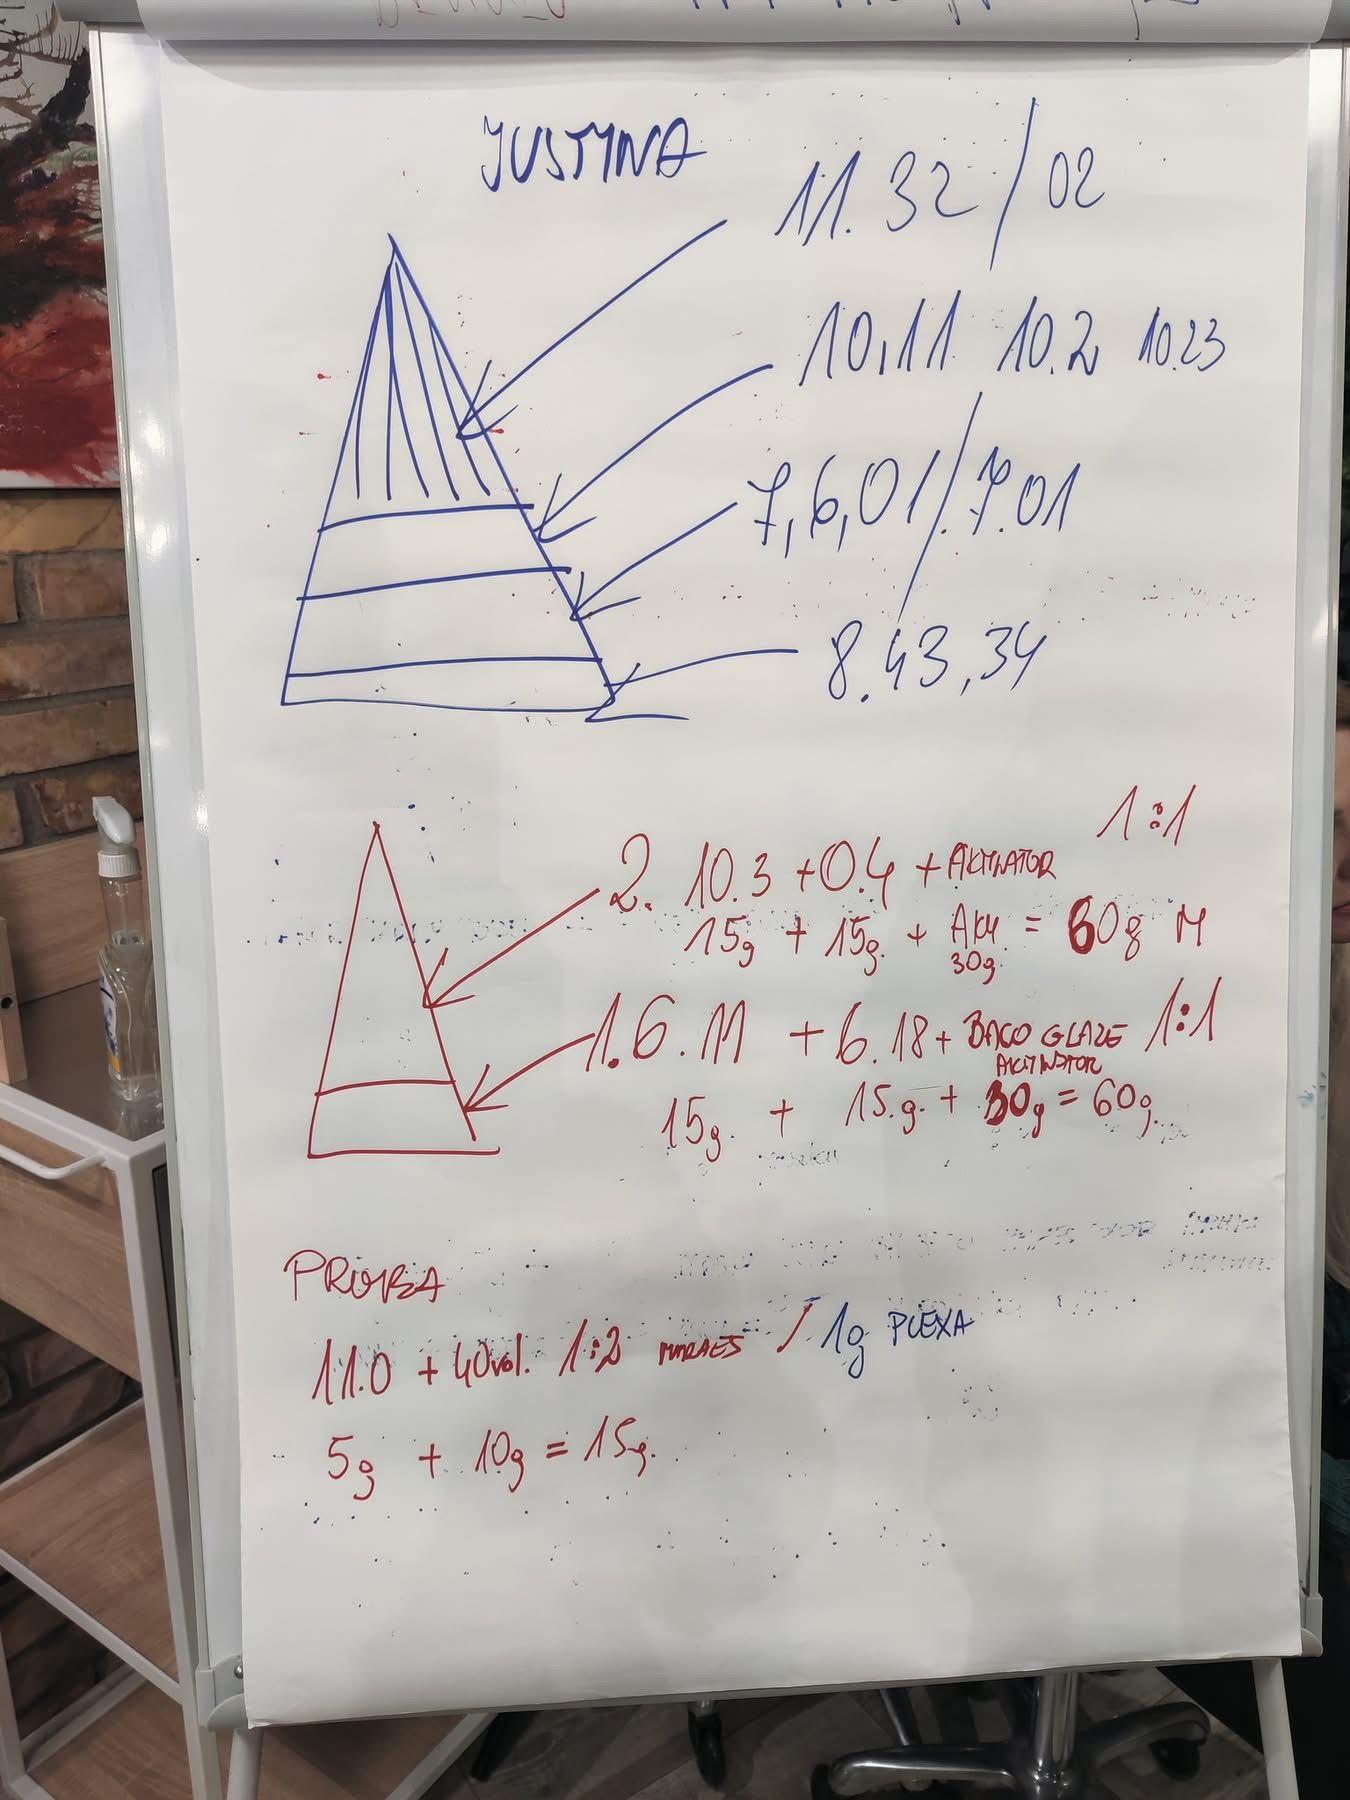 JUSTYNA
11.32/02
10,11 10.2 10.23
7,6,01/7.01
8.43,34
1:1
2. 10.3 + 0.4 + AKTYWATOR
15g + 15g. + AKY = 60g M
30g.
1.6.11 + 6.18 + BACO GLAZE 1:1
AKTYWATOR
15g. + 15.g. + 30g = 60g.
PRÓBA
11.0 + 40vol. 1:2 / 1g PLEXA
5g + 10g = 15g.